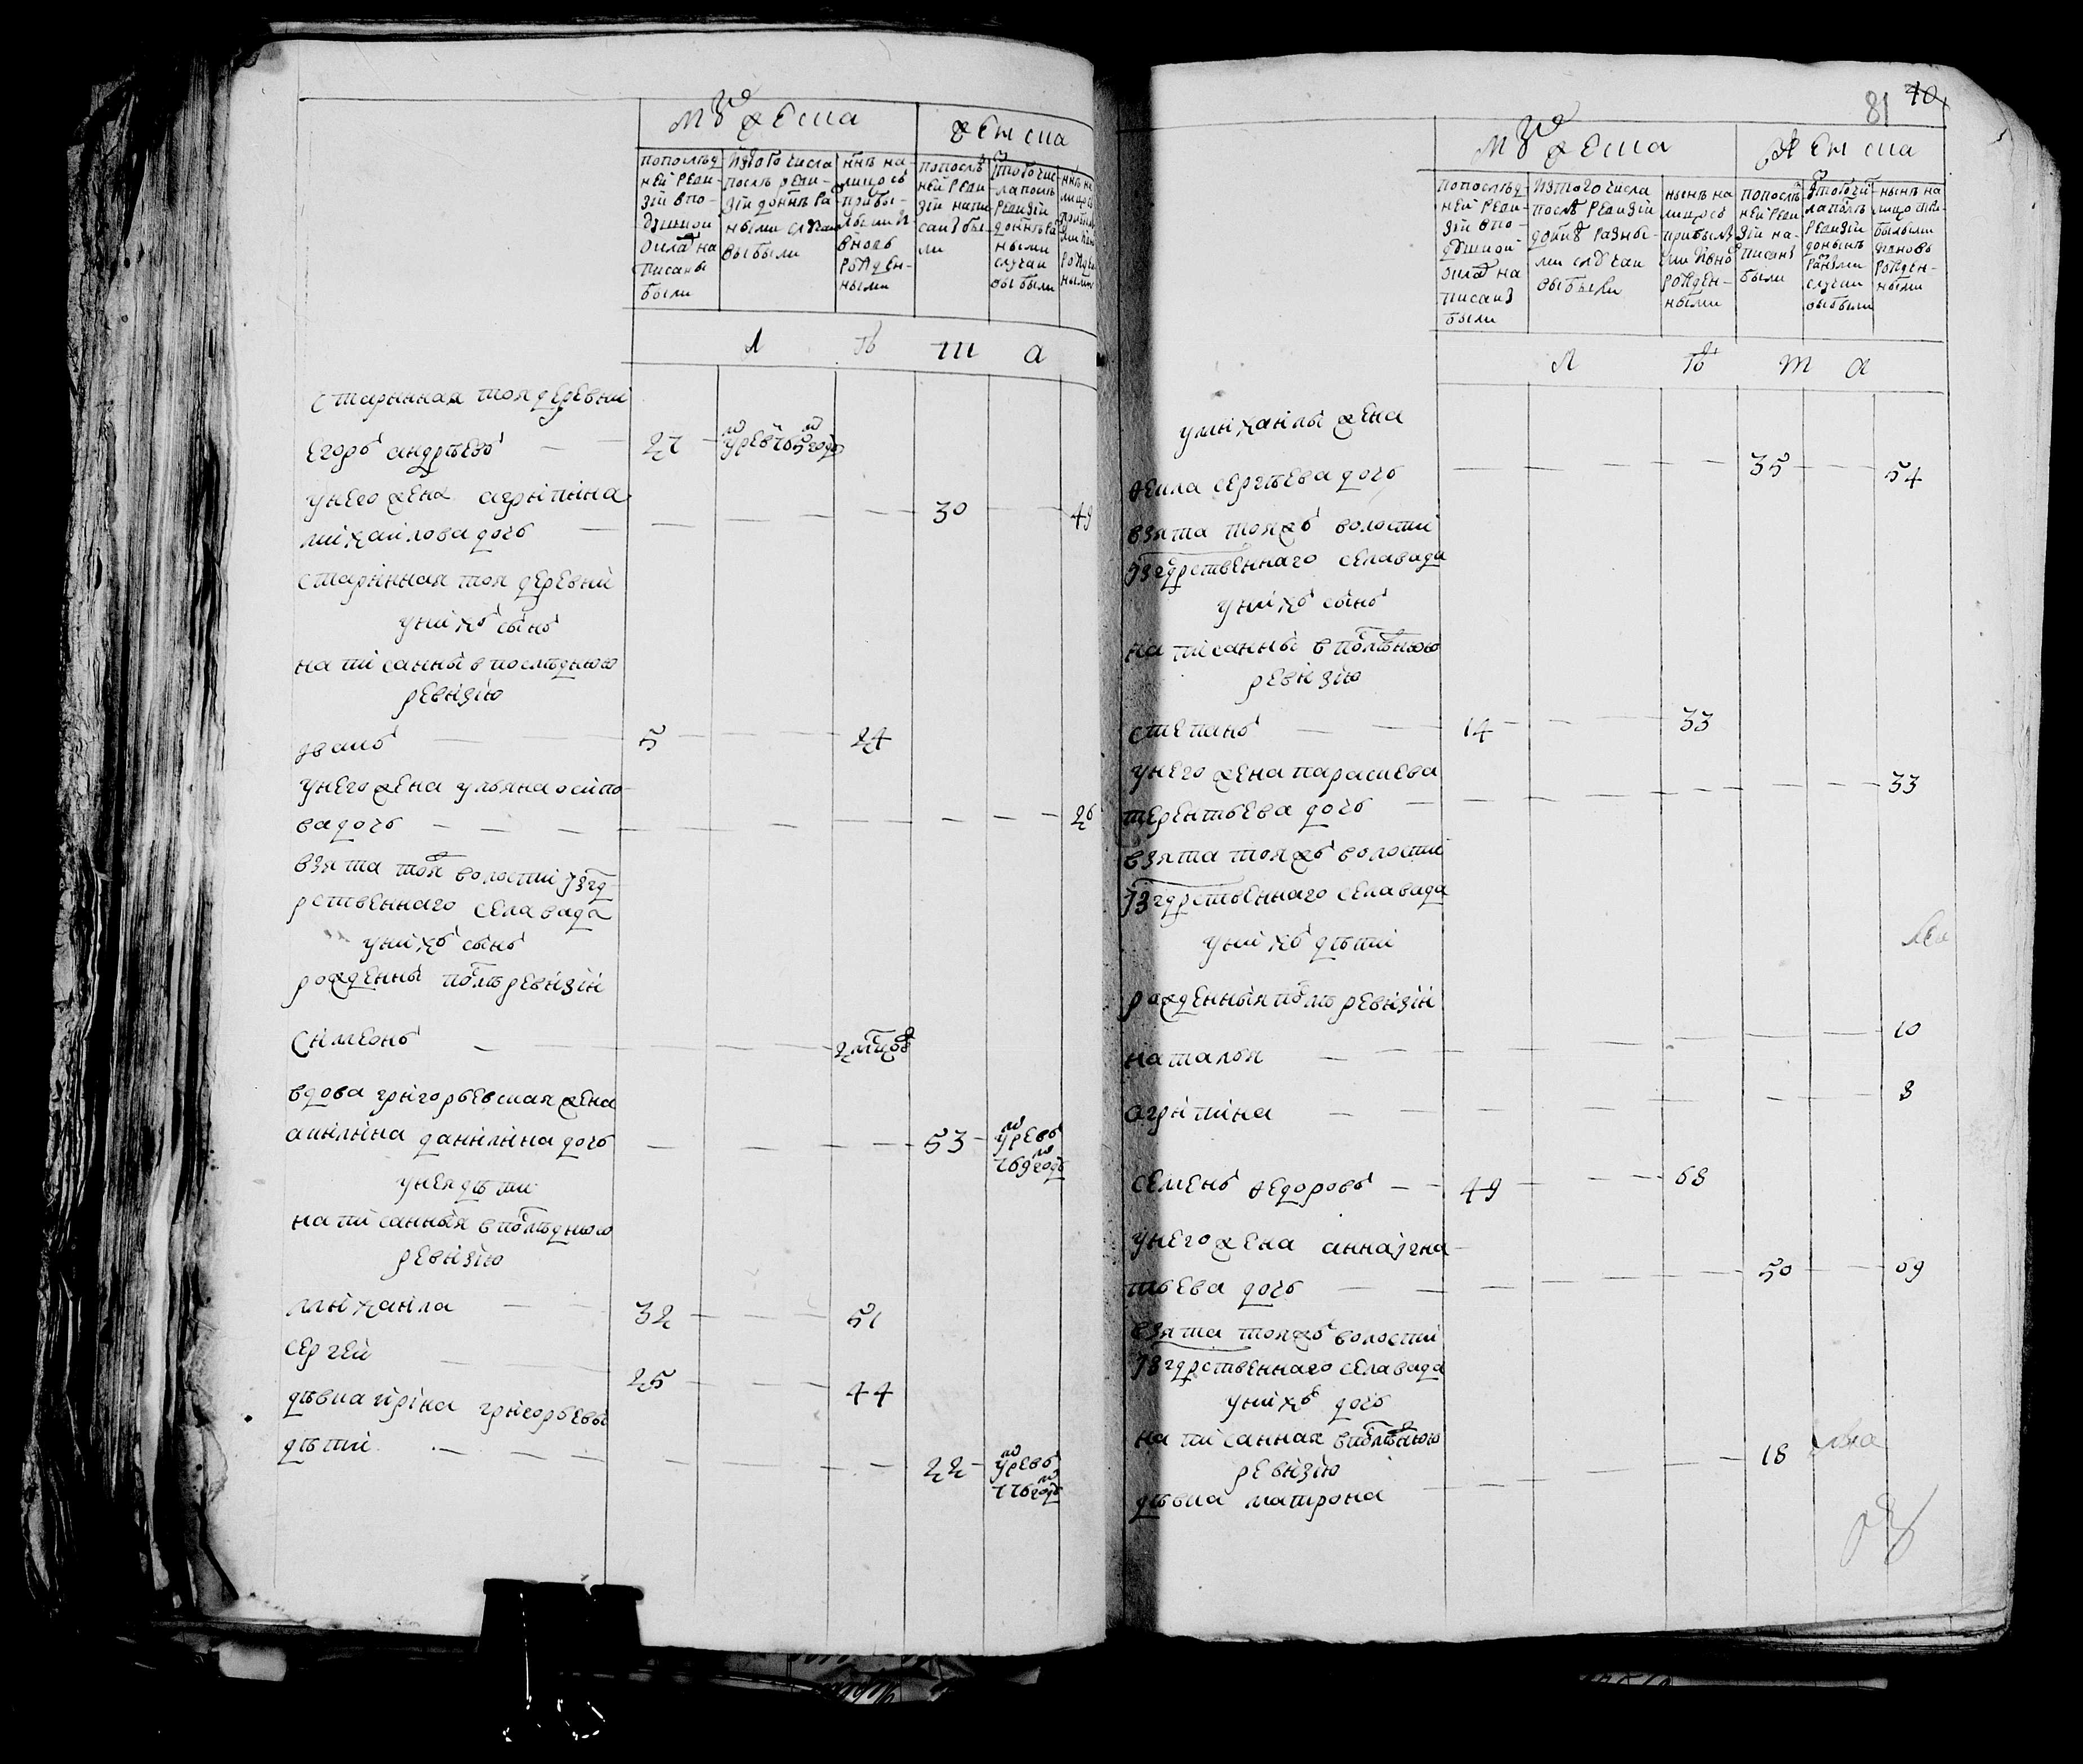 мужеска
женска
по последней ревизiи в подушной оклад написаны были
из того числа после ревизiи до ныне разными случаи выбыли
ныне на лицо с прибылыми и вновь рожденными
по последней ревизiи написаны были
из того числа после ревизiи до ныне разными случаи выбыли
лета
стариннаяж тоя деревни
Егоръ андрѣевъ 27
унего жена агрипiна
михаилова дочь 30 49
старинная тоя деревни
унихъ сынъ
написанны в последнюю
ревизiю
5 24
унего жена ульяна осипо-
ва дочь 26
взята тояж волости iзгд-
рственнаго села вада
унихъ сынъ
рожденны послѣ ревизiи
Симеонъ 2 мсцовъ
вдова григорьевская жена
акилина данилина дочь 53 умре въ 769 годе
унея дѣти
написанныя в последнюю
ревизiю
михаила 32 51
сергей 25 44
дѣвка iрiна григорьевы
дѣти 22 умре въ 776 годе
81 40
мужеска
женска
по последней ревизiи в подушной оклад написаны были
из того числа после ревизiи до ныне разными случаи выбыли
ныне на лицо с прибылыми и вновь рожденными
по после ней ревизiи написаны были
из того числа после ревизiи до ныне разными случаи выбыли
ныне на лицо с прибылыми и вновь рожденными
лета
умихаилы жена
ѳекла сергѣева дочь 35 54
взята тояжъ волости
iзгдрственнаго села вада
унихъ сынъ
написанны в последнюю
ревизiю
степанъ 14 33
унего жена параскева
терентьева дочь 33
взята тояжъ волости
iзгдрственнаго села вада
унихъ дѣти
рожденныя послѣ ревизiи
наталья 10
агрипiна 8
семенъ ѳедоровъ 49 68
унего жена анна iгна-
тьева дочь 50 69
взята тояжъ волости
iзгдрственнаго села вада
унихъ дочь
написанная в последнюю
ревизiю
дѣвка матрона 18